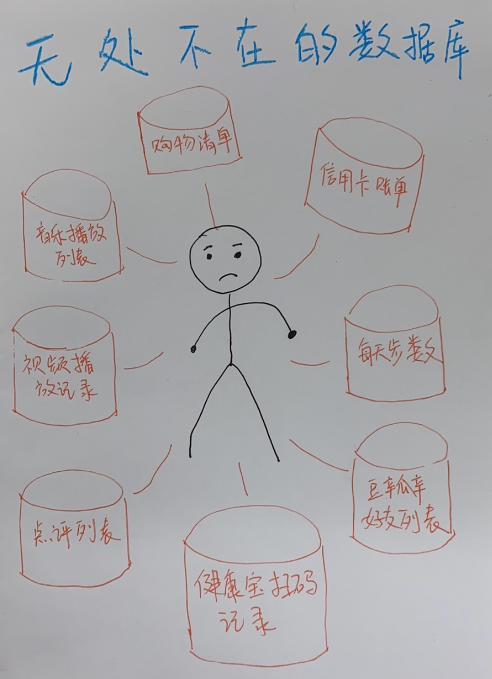 无处不在的数据库
购物清单
信用卡账单
音乐播放
列表
每天步数
视频播
放记录
豆瓣
好友列表
点评列表
健康宝扫码
记录